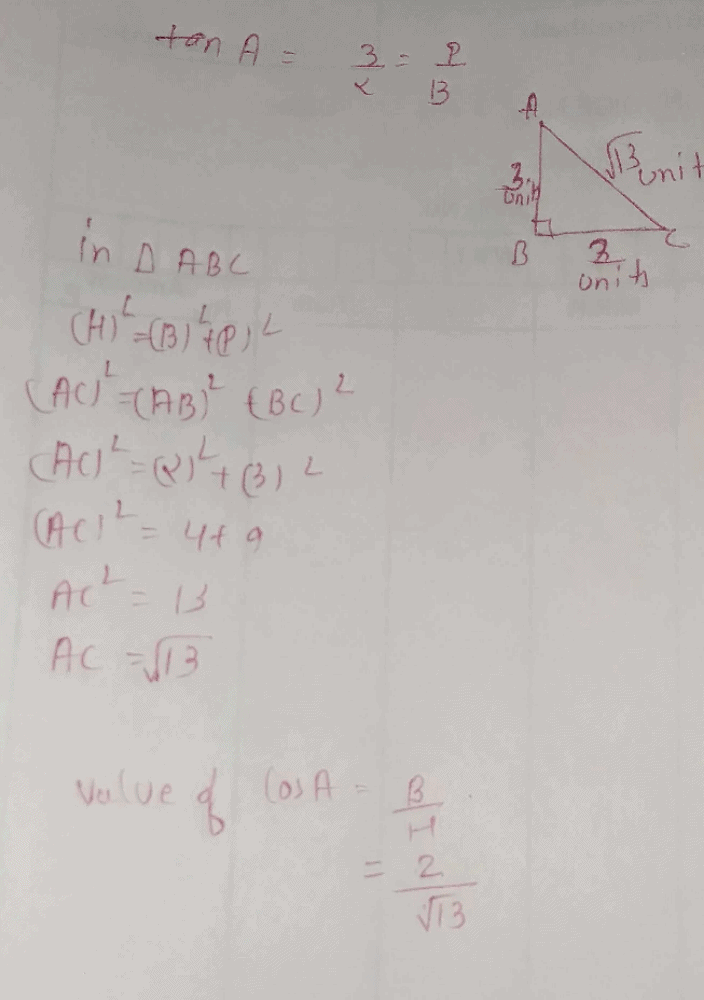 tan A = 3/2 = P/B
A
√13 unit
3 unit
B
C
3 units
in Δ ABC
(H)² = (B)² + (P)²
(AC)² = (AB)² + (BC)²
(AC)² = (2)² + (3)²
(AC)² = 4 + 9
AC² = 13
AC = √13
value of Cos A = B/H
= 2/√13